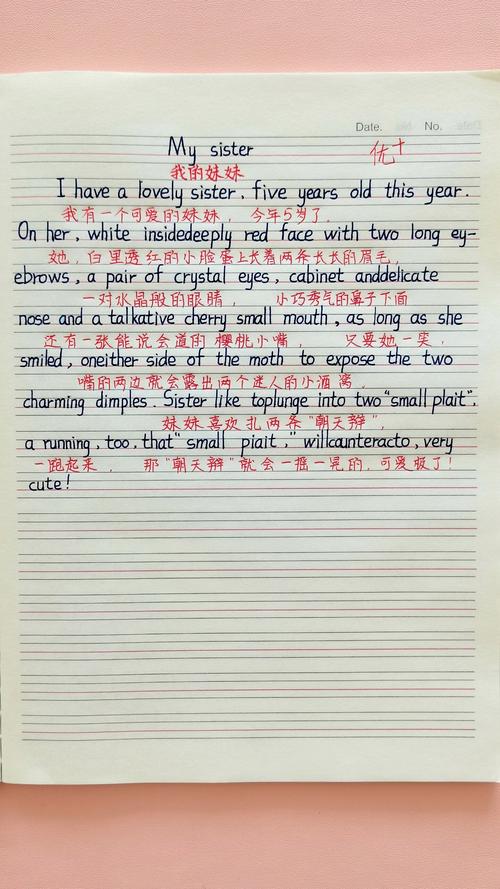 Date. No.
My sister
优+
我的妹妹
I have a lovely sister, five years old this year.
我有一个可爱的妹妹, 今年5岁了.
On her, white insidedeeply red face with two long ey-
她, 白里透红的小脸蛋上长着两条长长的眉毛,
ebrows, a pair of crystal eyes, cabinet anddelicate
一对水晶般的眼睛, 小巧秀气的鼻子下面
nose and a talkative cherry small mouth, as long as she
还有一张能说会道的樱桃小嘴, 只要她一笑,
smiled, oneither side of the moth to expose the two
嘴的两边就会露出两个迷人的小酒窝,
charming dimples. Sister like toplunge into two "small plait".
妹妹喜欢扎两条"朝天辫",
a running, too, that "small piait," willcounteracto, very
一跑起来, 那"朝天辫"就会一摇一晃的, 可爱极了!
cute!